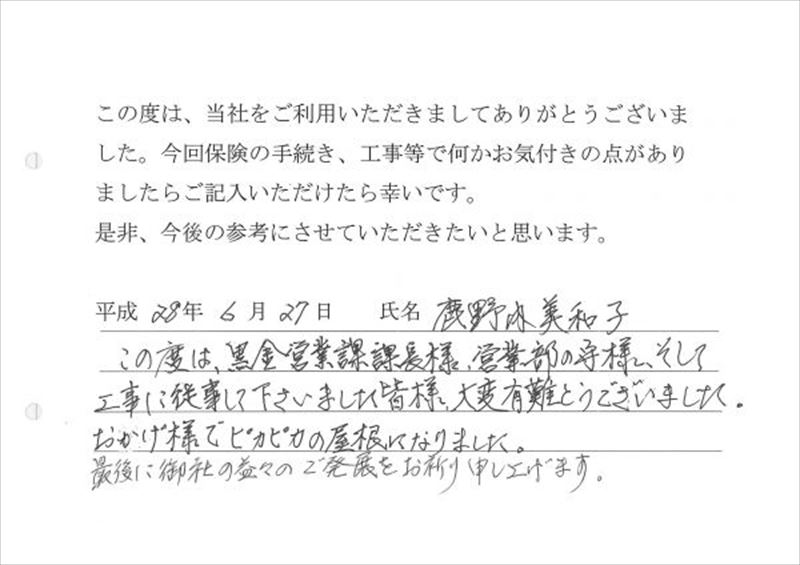 この度は、当社をご利用いただきましてありがとうございま
した。今回保険の手続き、工事等で何かお気付きの点があり
ましたらご記入いただけたら幸いです。
是非、今後の参考にさせていただきたいと思います。
平成 28年 6月 27日 氏名 鹿野 美和子
この度は、黒金営業課課長様、営業部の守様、そして
工事に従事して下さいました皆様、大変有難とうございました。
おかげ様でピカピカの屋根になりました。
最後に御社の益々のご発展をお祈り申し上げます。